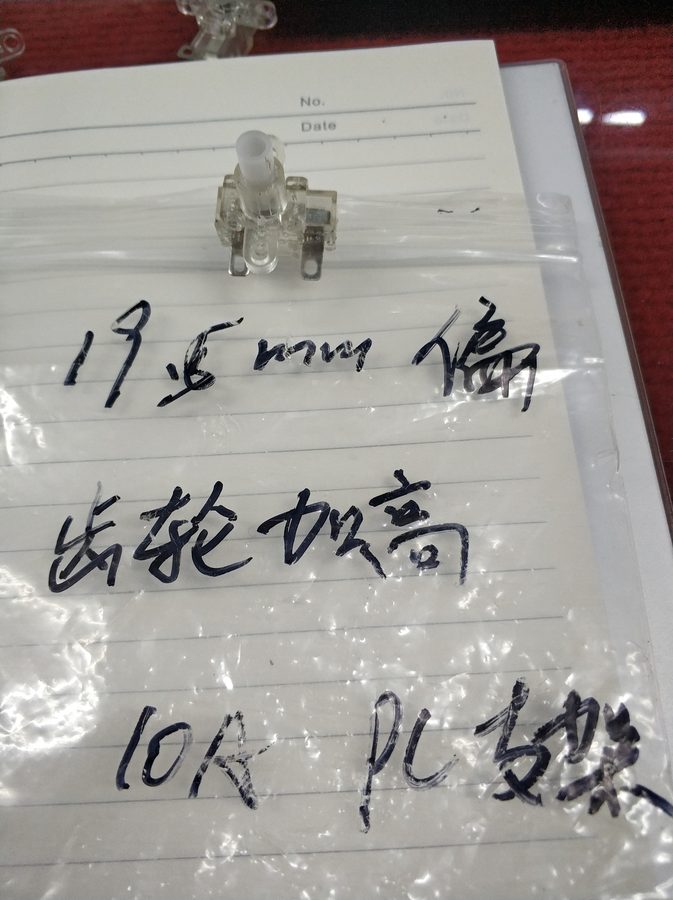 No.
Date
19.5mm 偏
齿轮加高
10A PC 支架